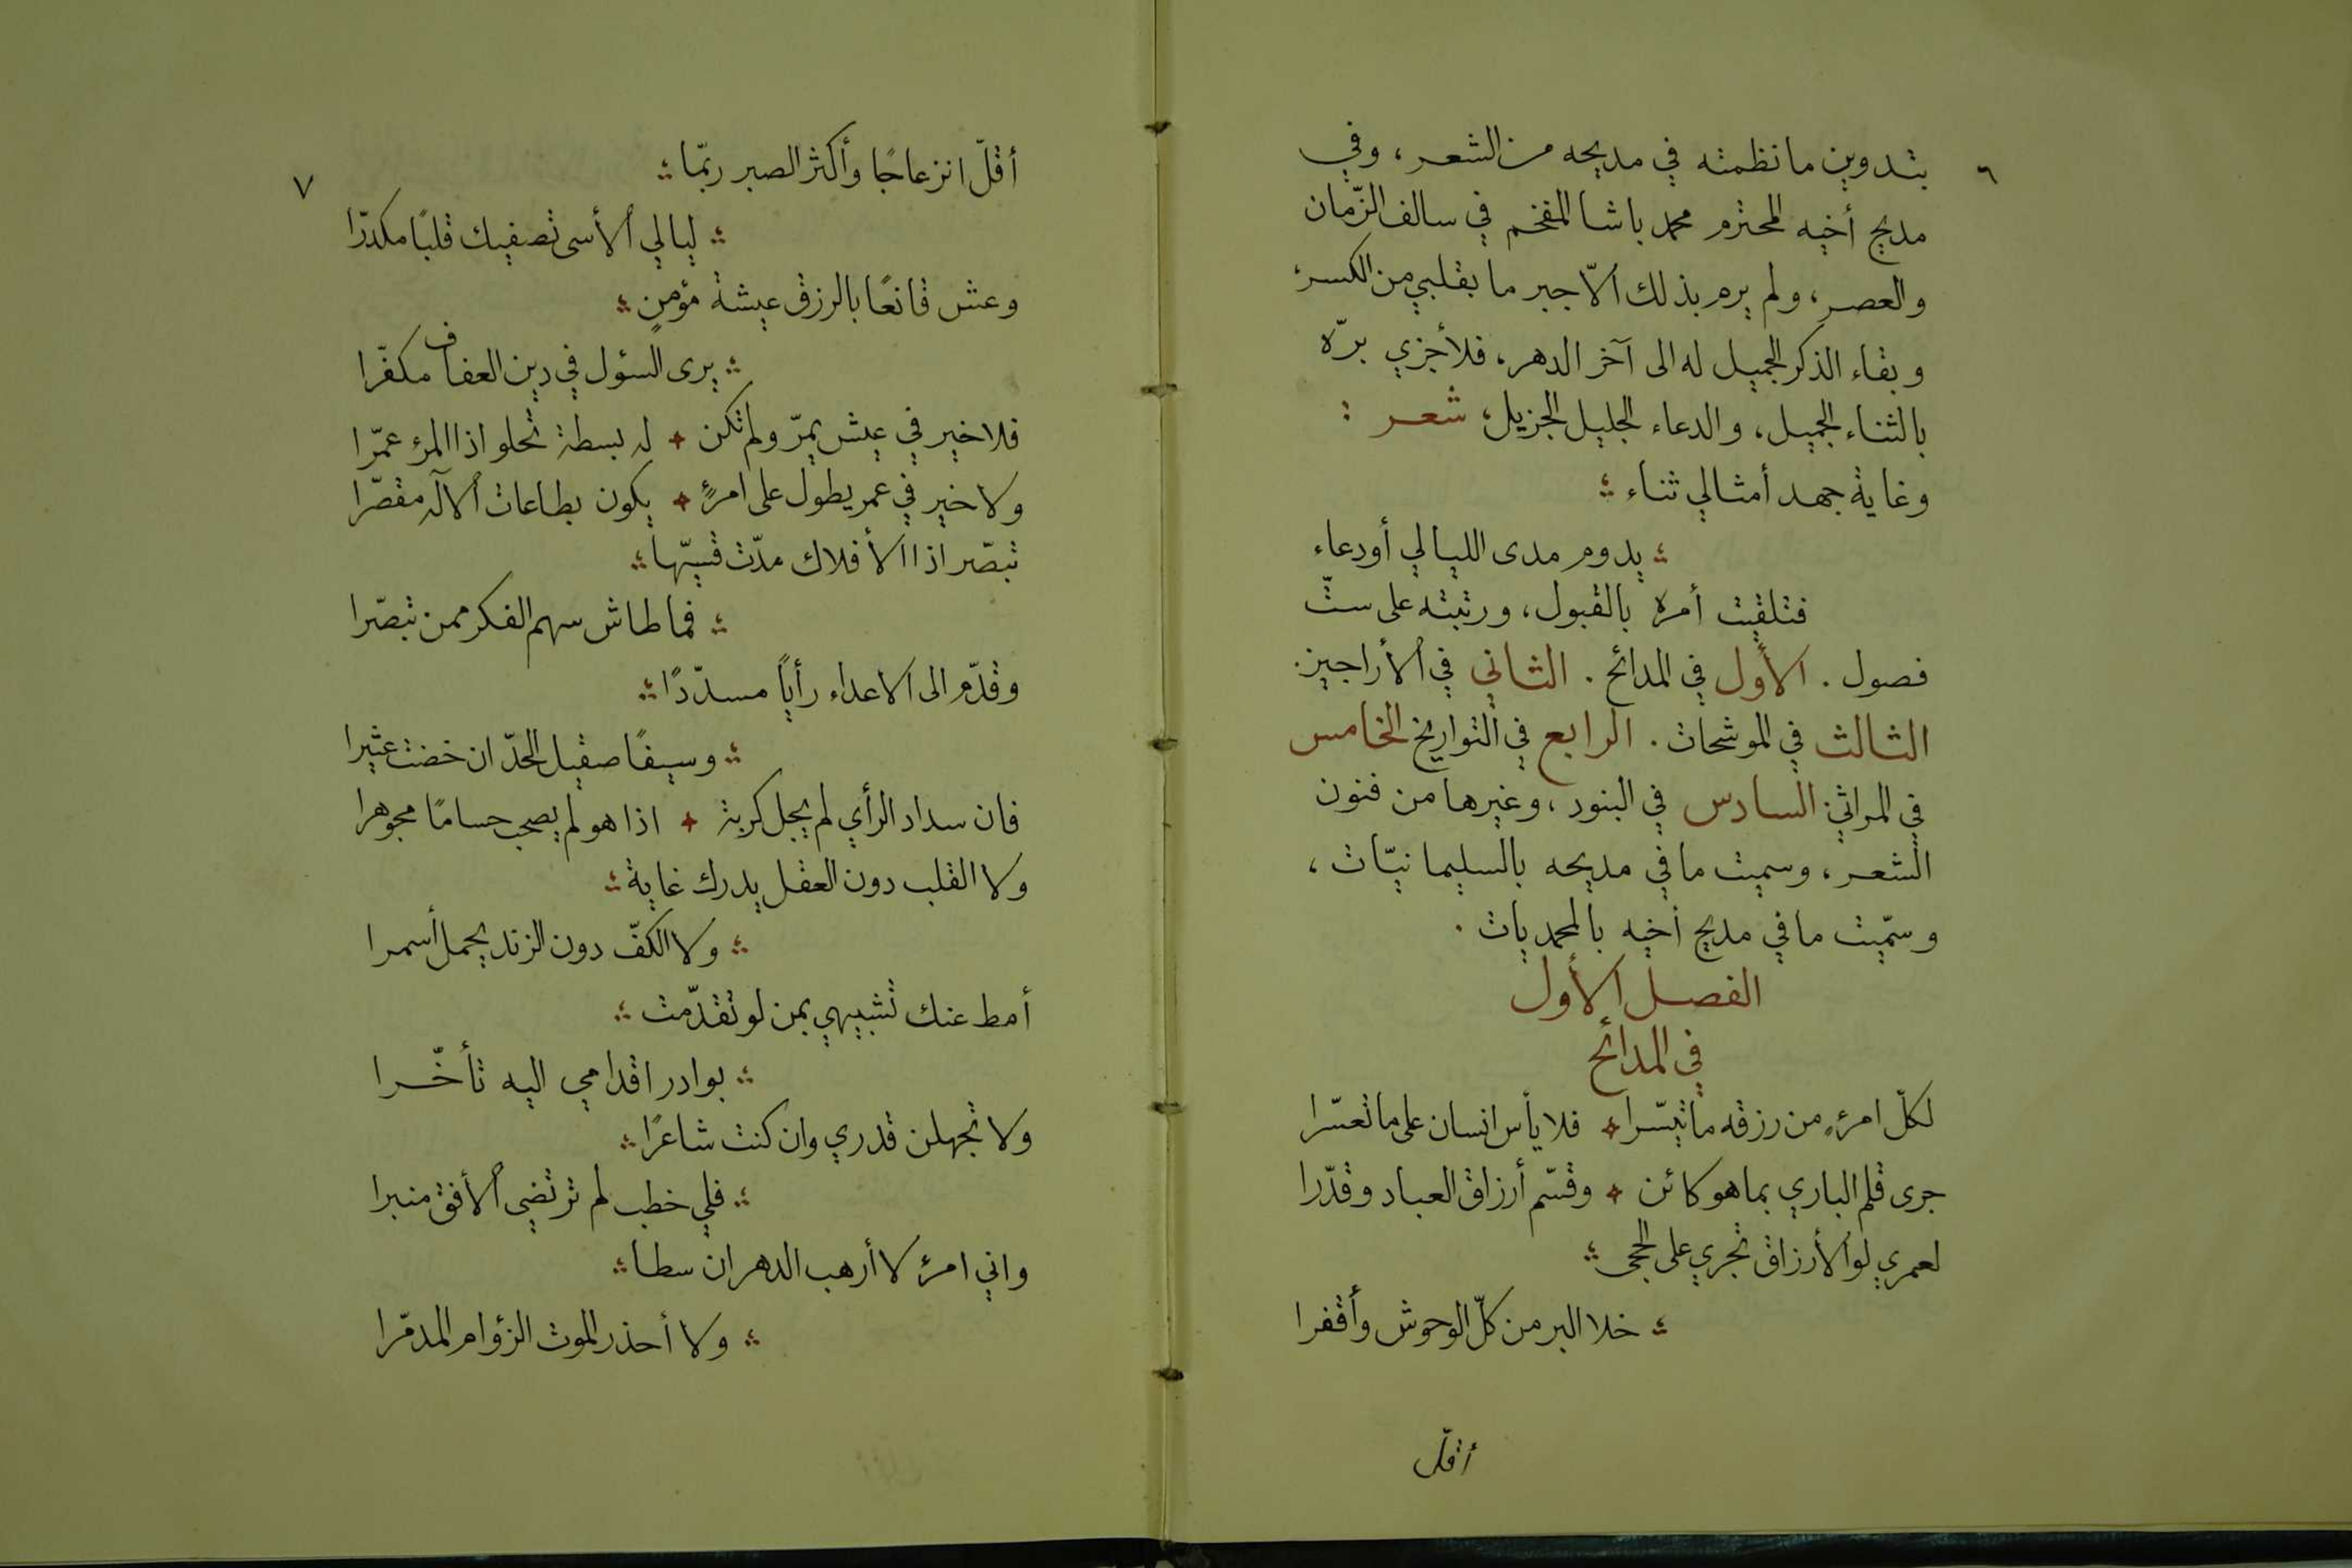 ٦
بتدوين ما نظمته في مديحه من الشعر، وفي
مديح أخيه المحترم محمد باشا المفخم في سالف الزّمان
والعصر، ولم يرم بذلك الاّ جبر ما بقلبي من الكسر
وبقاء الذكر الجميل له الى آخر الدهر، فلأجزي برّه
بالثناء الجميل، والدعاء الجليل الجزيل، شعر :
وغاية جهد أمثالي ثناء
يدوم مدى الليالي أو دعاء
فتلقيت أمره بالقبول، ورتبته على ستّ
فصول . الأول في المدائح . الثاني في الأراجيز .
الثالث في الموشحات . الرابع في التواريخ الخامس
في المراثي السادس في البنود، وغيرها من فنون
الشعر، وسميت ما في مديحه بالسليمانيّات،
وسمّيت ما في مديح أخيه بالمحمديات .
الفصل الأول
في المدائح
لكلّ امرءٍ من رزقه ما تيسّرا فلا يأس انسان على ما تعسّرا
جرى قلم الباري بما هو كائن وقسّم أرزاق العباد وقدّرا
لعمري لو الأرزاق تجري على الحجى
خلا البر من كلّ الوحوش وأقفرا
أقلّ
٧
أقلّ انزعاجًا وأكثر الصبر ربّما
ليالي الأسى تصفيك قلبًا مكدّرا
وعش قانعًا بالرزق عيشة مؤمنٍ
يرى السؤل في دين العفاف مكفّرا
فلا خير في عيش يمرّ ولم تكن له بسطة تحلو اذا المرء عمّرا
ولا خير في عمر يطول على امرءٍ يكون بطاعات الآله مقصّرا
تبصّر اذا الأفلاك مدّت قسيّها
فما طاش سهم الفكر ممن تبصّرا
وقدّم الى الاعداء رأيًا مسدّدًا
وسيفًا صقيل الحدّ ان خضت عثيرا
فان سداد الرأي لم يجل كربة اذا هو لم يصحب حسامًا مجوهرا
ولا القلب دون العقل يدرك غاية
ولا الكفّ دون الزند يحمل أسمرا
أمط عنك تشبيهي بمن لو تقدّمت
بوادر اقدامي اليه تأخّرا
ولا تجهلن قدري وان كنت شاعرًا
فلي خطب لم ترتضي الأفق منبرا
واني امرء لا أرهب الدهر ان سطا
ولا أحذر الموت الزؤام المدمّرا